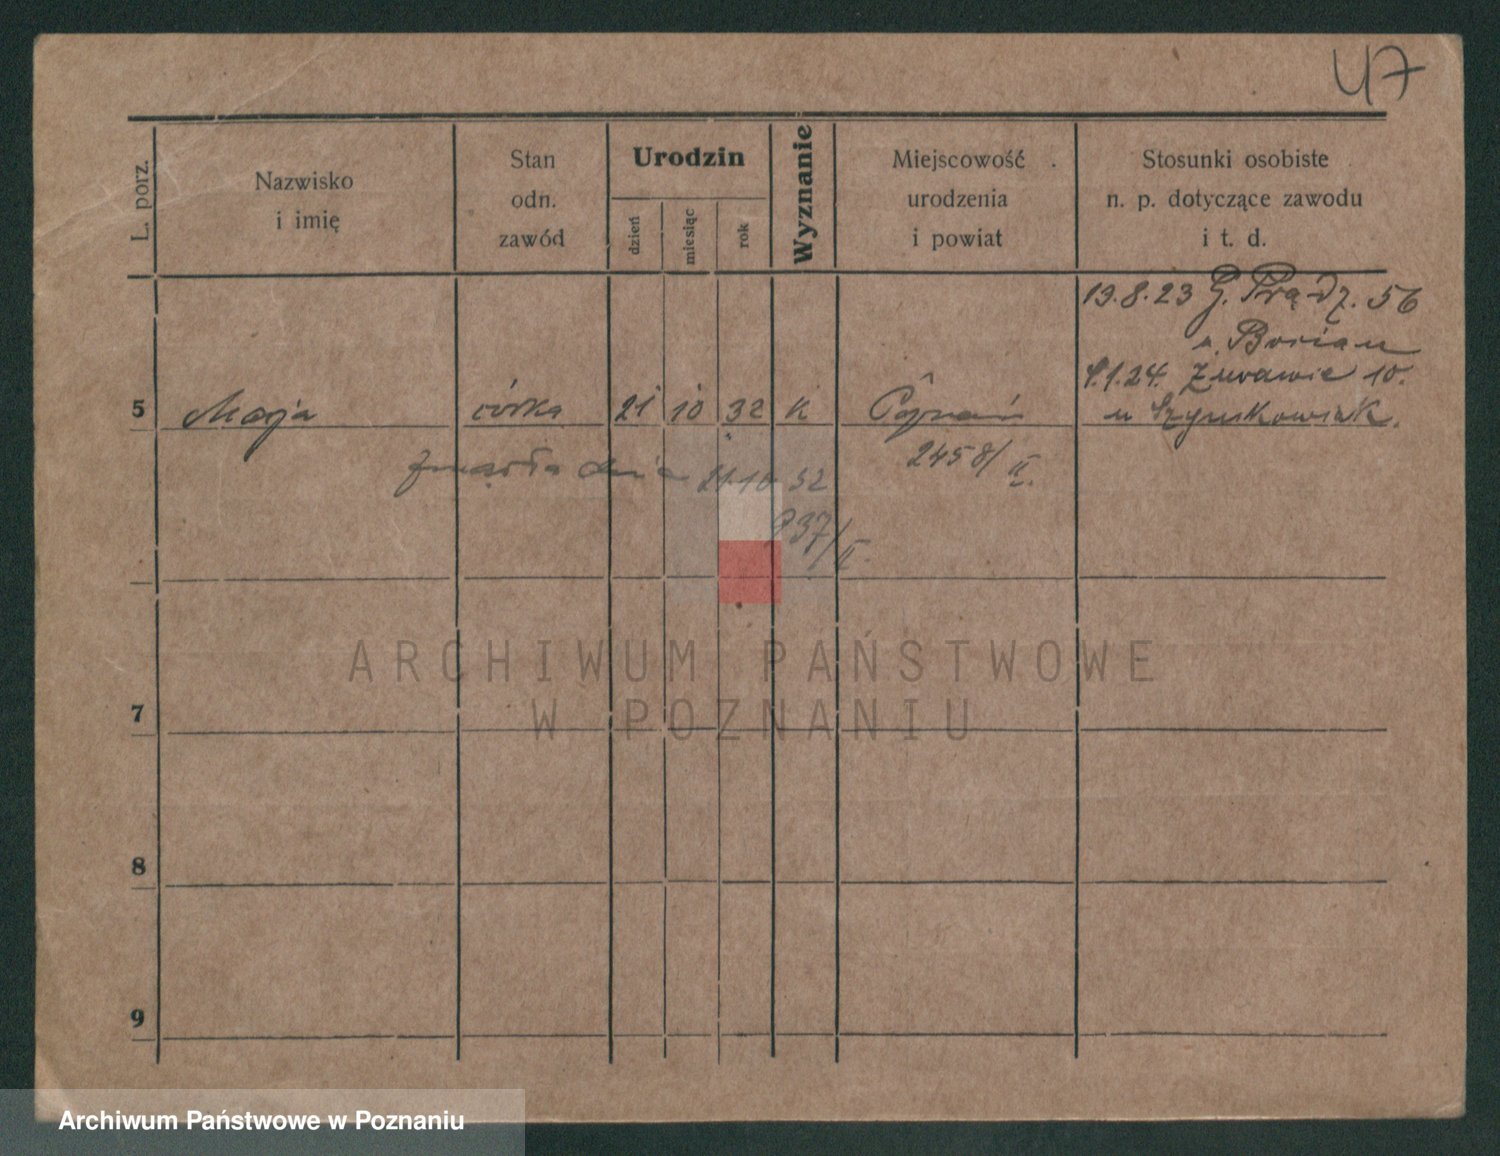 47
L. porz.
Nazwisko
i imię
Stan
odn.
zawód
Urodzin
dzień
miesiąc
rok
Wyznanie
Miejscowość
urodzenia
i powiat
Stosunki osobiste
n. p. dotyczące zawodu
i t. d.
13.8.23 G. 56
u. Borian
4.1.24. Żurawie 10.
5 Marja córka 21 10 32 K Poznań u Szymkowiak.
zmarła dnia 21.10 32 2458/II.
937/II.
ARCHIWUM PAŃSTWOWE
W POZNANIU
7
8
9
Archiwum Państwowe w Poznaniu